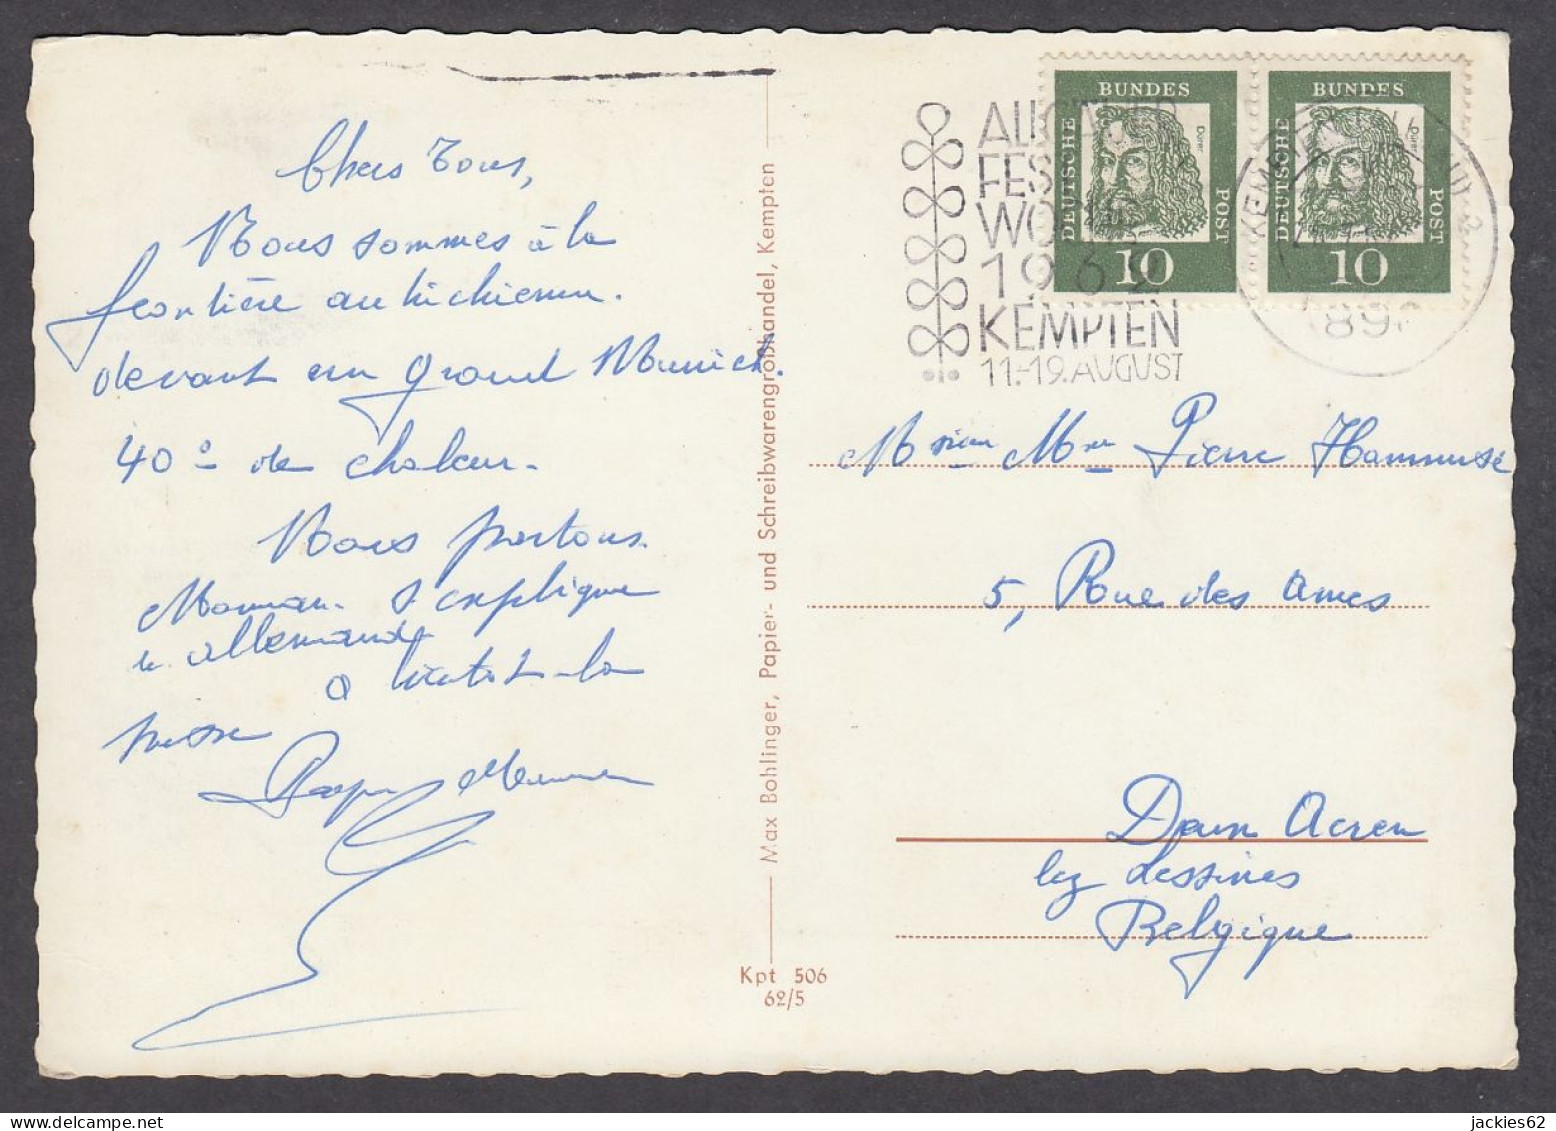 Chers tous,
Nous sommes à la
frontière autrichienne.
devant un grand Munich.
40° de chaleur.
Nous partons.
Maman s'explique
allemande
a bientot la
presse
Max Bohlinger, Papier- und Schreibwarengroßhandel, Kempten
Kpt 506
62/5
ALLGÄUER
FEST
WOCHE
1962
KEMPTEN
11.-19. AUGUST
BUNDES
DEUTSCHE
POST
Dürer
10
BUNDES
DEUTSCHE
POST
Dürer
10
KEMPTEN
Pierre
5, Rue des Ames
Acren
lez Lessines
Belgique
jackies62